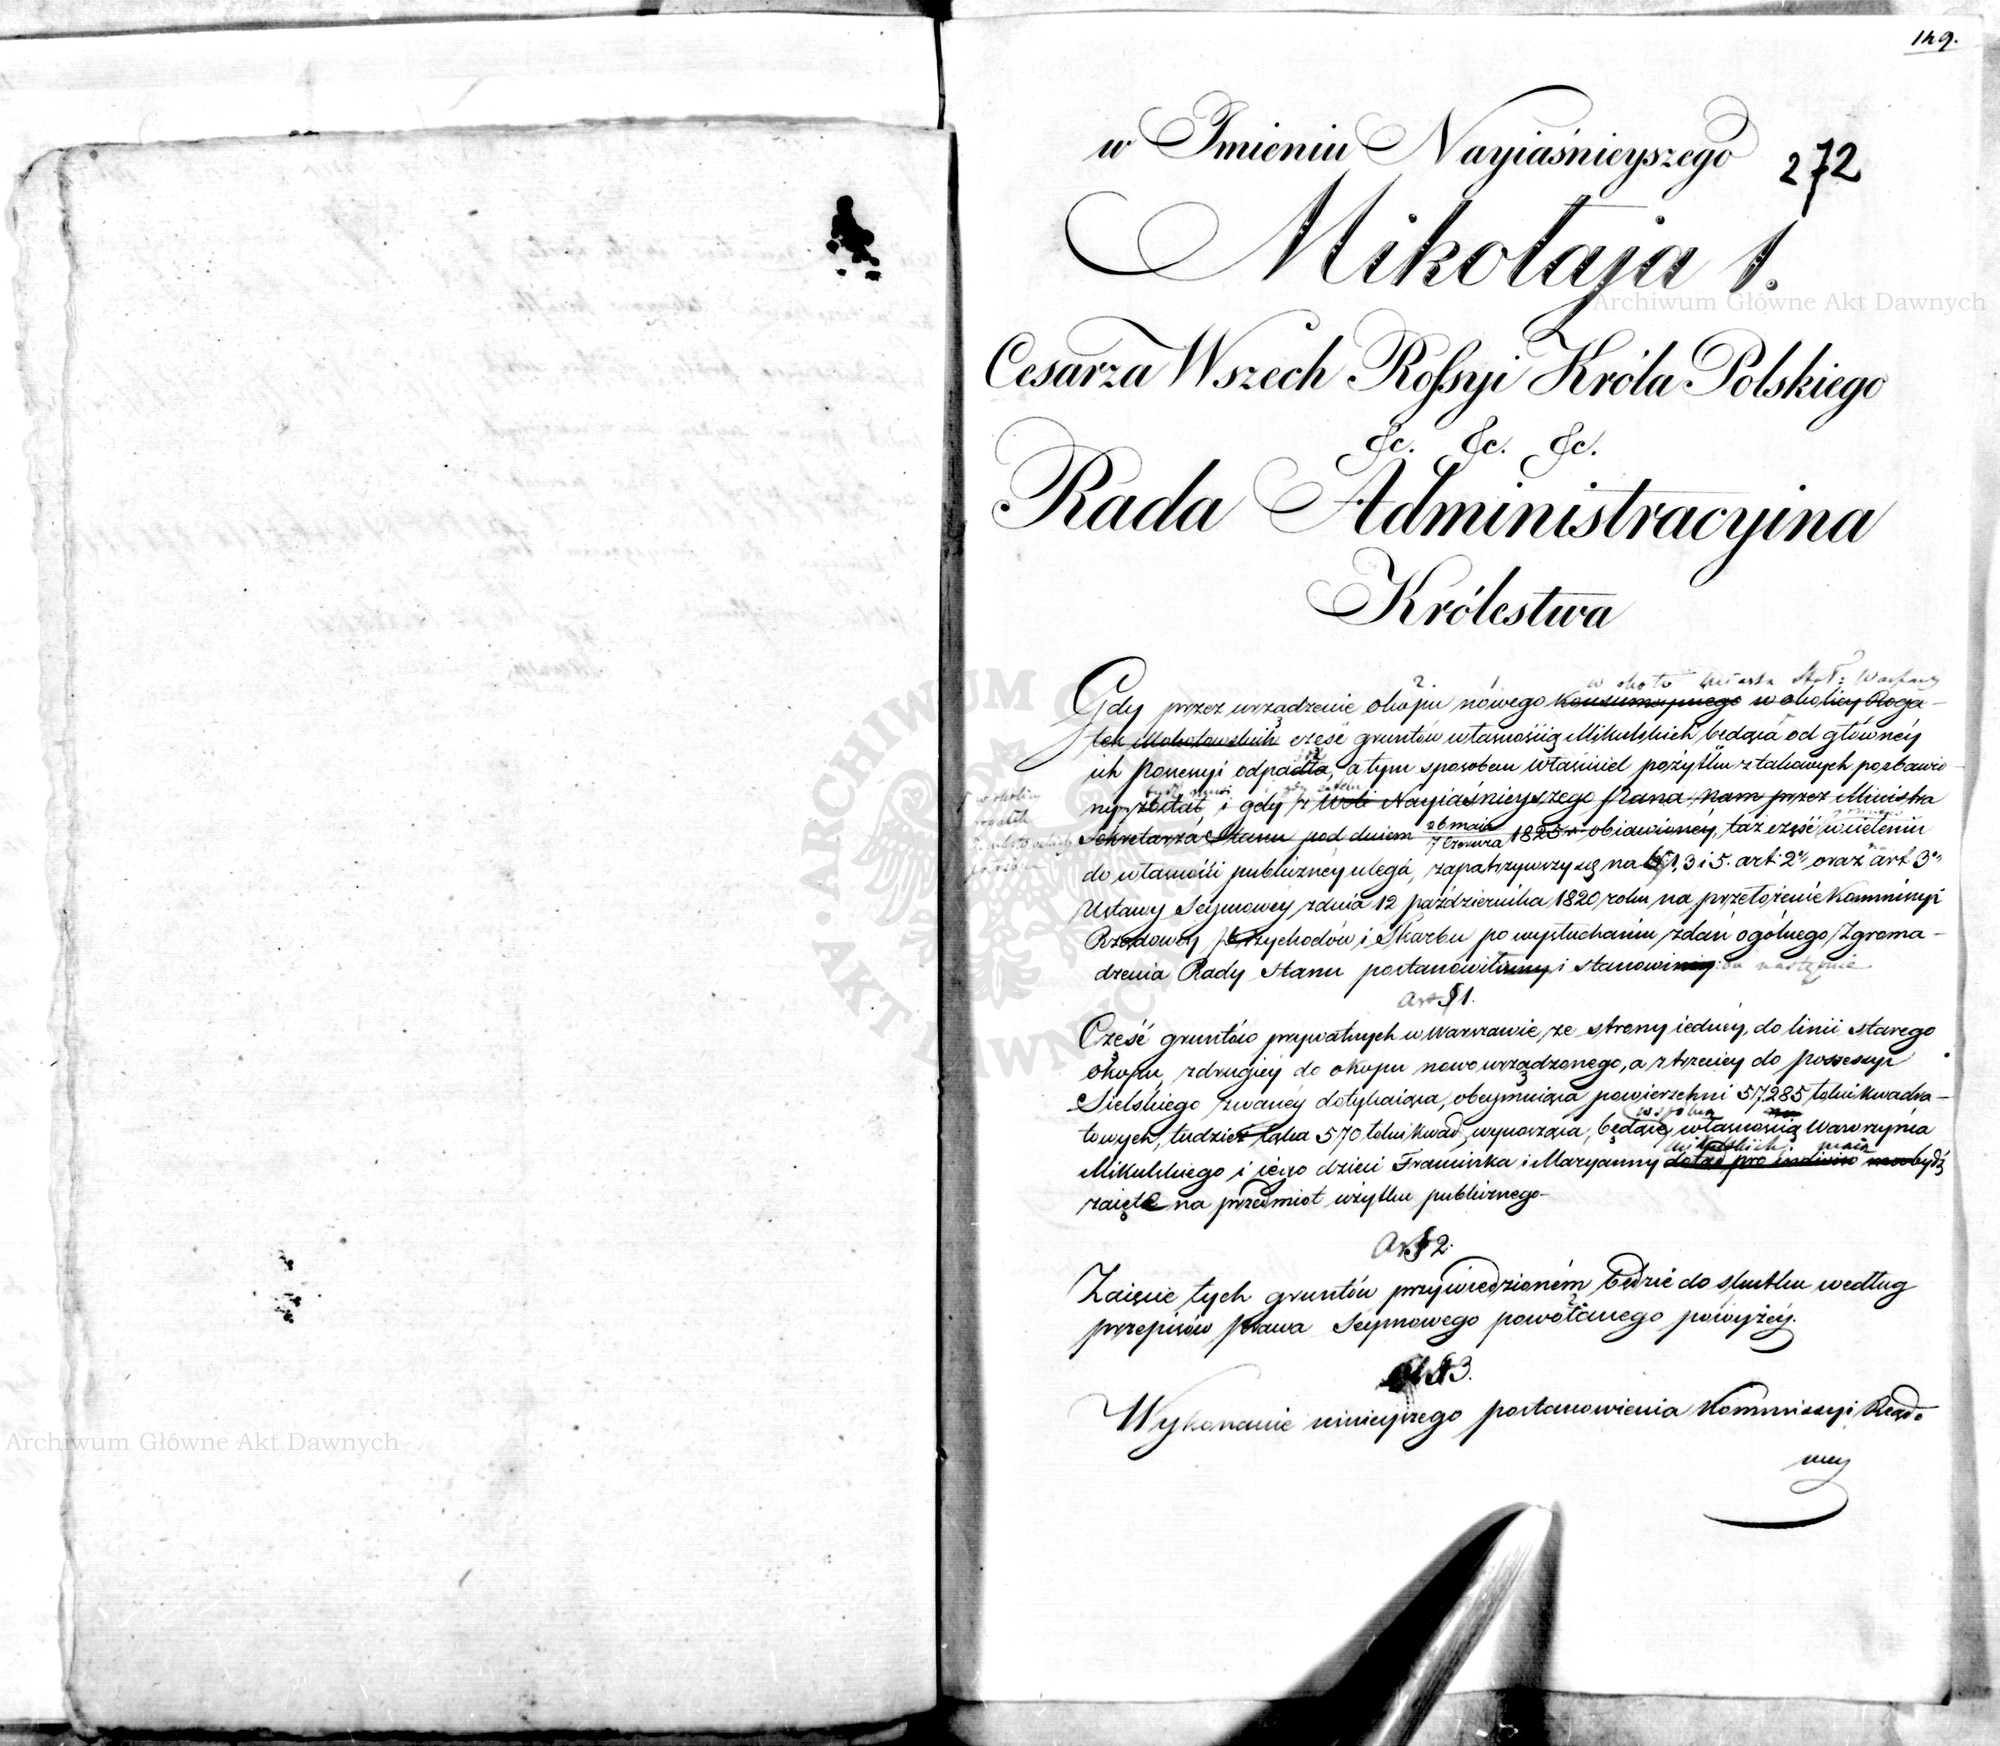 149.
272
w Imieniu Nayiaśnieyszego
Mikołaja I.
Cesarza Wszech Rossyi Króla Polskiego
&c. &c. &c.
Rada Administracyina
Królestwa
w około Miasta Stoł: Warszawy
2. 1.
Gdy przez urządzenie okopu nowego konsumcyjnego w okolicy Roga-
tek Mokotowskich część gruntów własnością Mikulskich będąca od głównéy
ich Possesyi odpadła, a tym sposobem właściciel pożytku z takowych pozbawio-
ny został, i gdy z Woli Nayiaśnieyszego Pana, nam przez Ministra
w okolicy
rogatek
Mokotowskich
Sekretarza Stanu pod dniem 26 maia / 7 Czerwca 1825 r. obiawionéy, taż część wcieleniu
do własności publicznéy ulega, zapatrzywszy się na §§ 1, 3 i 5. art: 2º oraz art 3º
Ustawy Seymowey z dnia 12 października 1820 roku, na przełożenie Kommissyi
Rządowéy Przychodów i Skarbu po wysłuchaniu zdań ogólnego Zgroma-
dzenia Rady Stanu postanowiliśmy i stanowimy: co następuie
Art § 1.
Część gruntów prywatnych w Warszawie, ze strony iednéy, do linii starego
okopu, z drugiéy do okopu nowo urządzonego, a z trzeciey do possessyi
Sielskiego zwanéy dotykaiąca, obeymuiąca powierzchni 57285 łokci kwadra-
towych, tudzież łąka 570 łokci kwad: wynosząca, będące własnością Wawrzyńca
wspólną
Mikulskich maią
Mikulskiego i iego dzieci Franciszka i Maryanny dotąd pro indiviso ma bydź
zaięte na przedmiot użytku publicznego-
Art § 2.
Zaięcie tych gruntów przywiedzioném będzie do skutku według
przepisów prawa Seymowego powołanego powyżéy.
§ 3.
Wykonanie ninieyszego postanowienia Kommissyi Rządo-
wey
Archiwum Główne Akt Dawnych
Archiwum Główne Akt Dawnych
ARCHIWUM GŁÓWNE AKT DAWNYCH